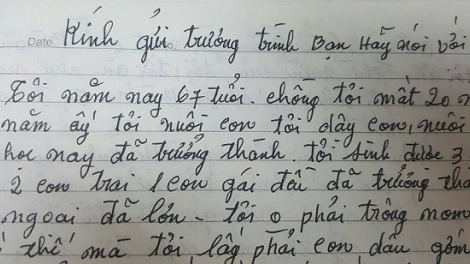 Date Kính gửi trương trình Bạn Hãy nói với
Tôi năm nay 67 tuổi. chồng tôi mất 20 n
năm ấy tôi nuôi con tôi dậy con, nuôi
học nay đã trưởng thành. tôi sinh được 3
2 con trai 1 con gái đều đã trưởng thà
ngoai đã lớn - tôi o phải trông nom
thế mà tôi lấy phải con dâu gớm